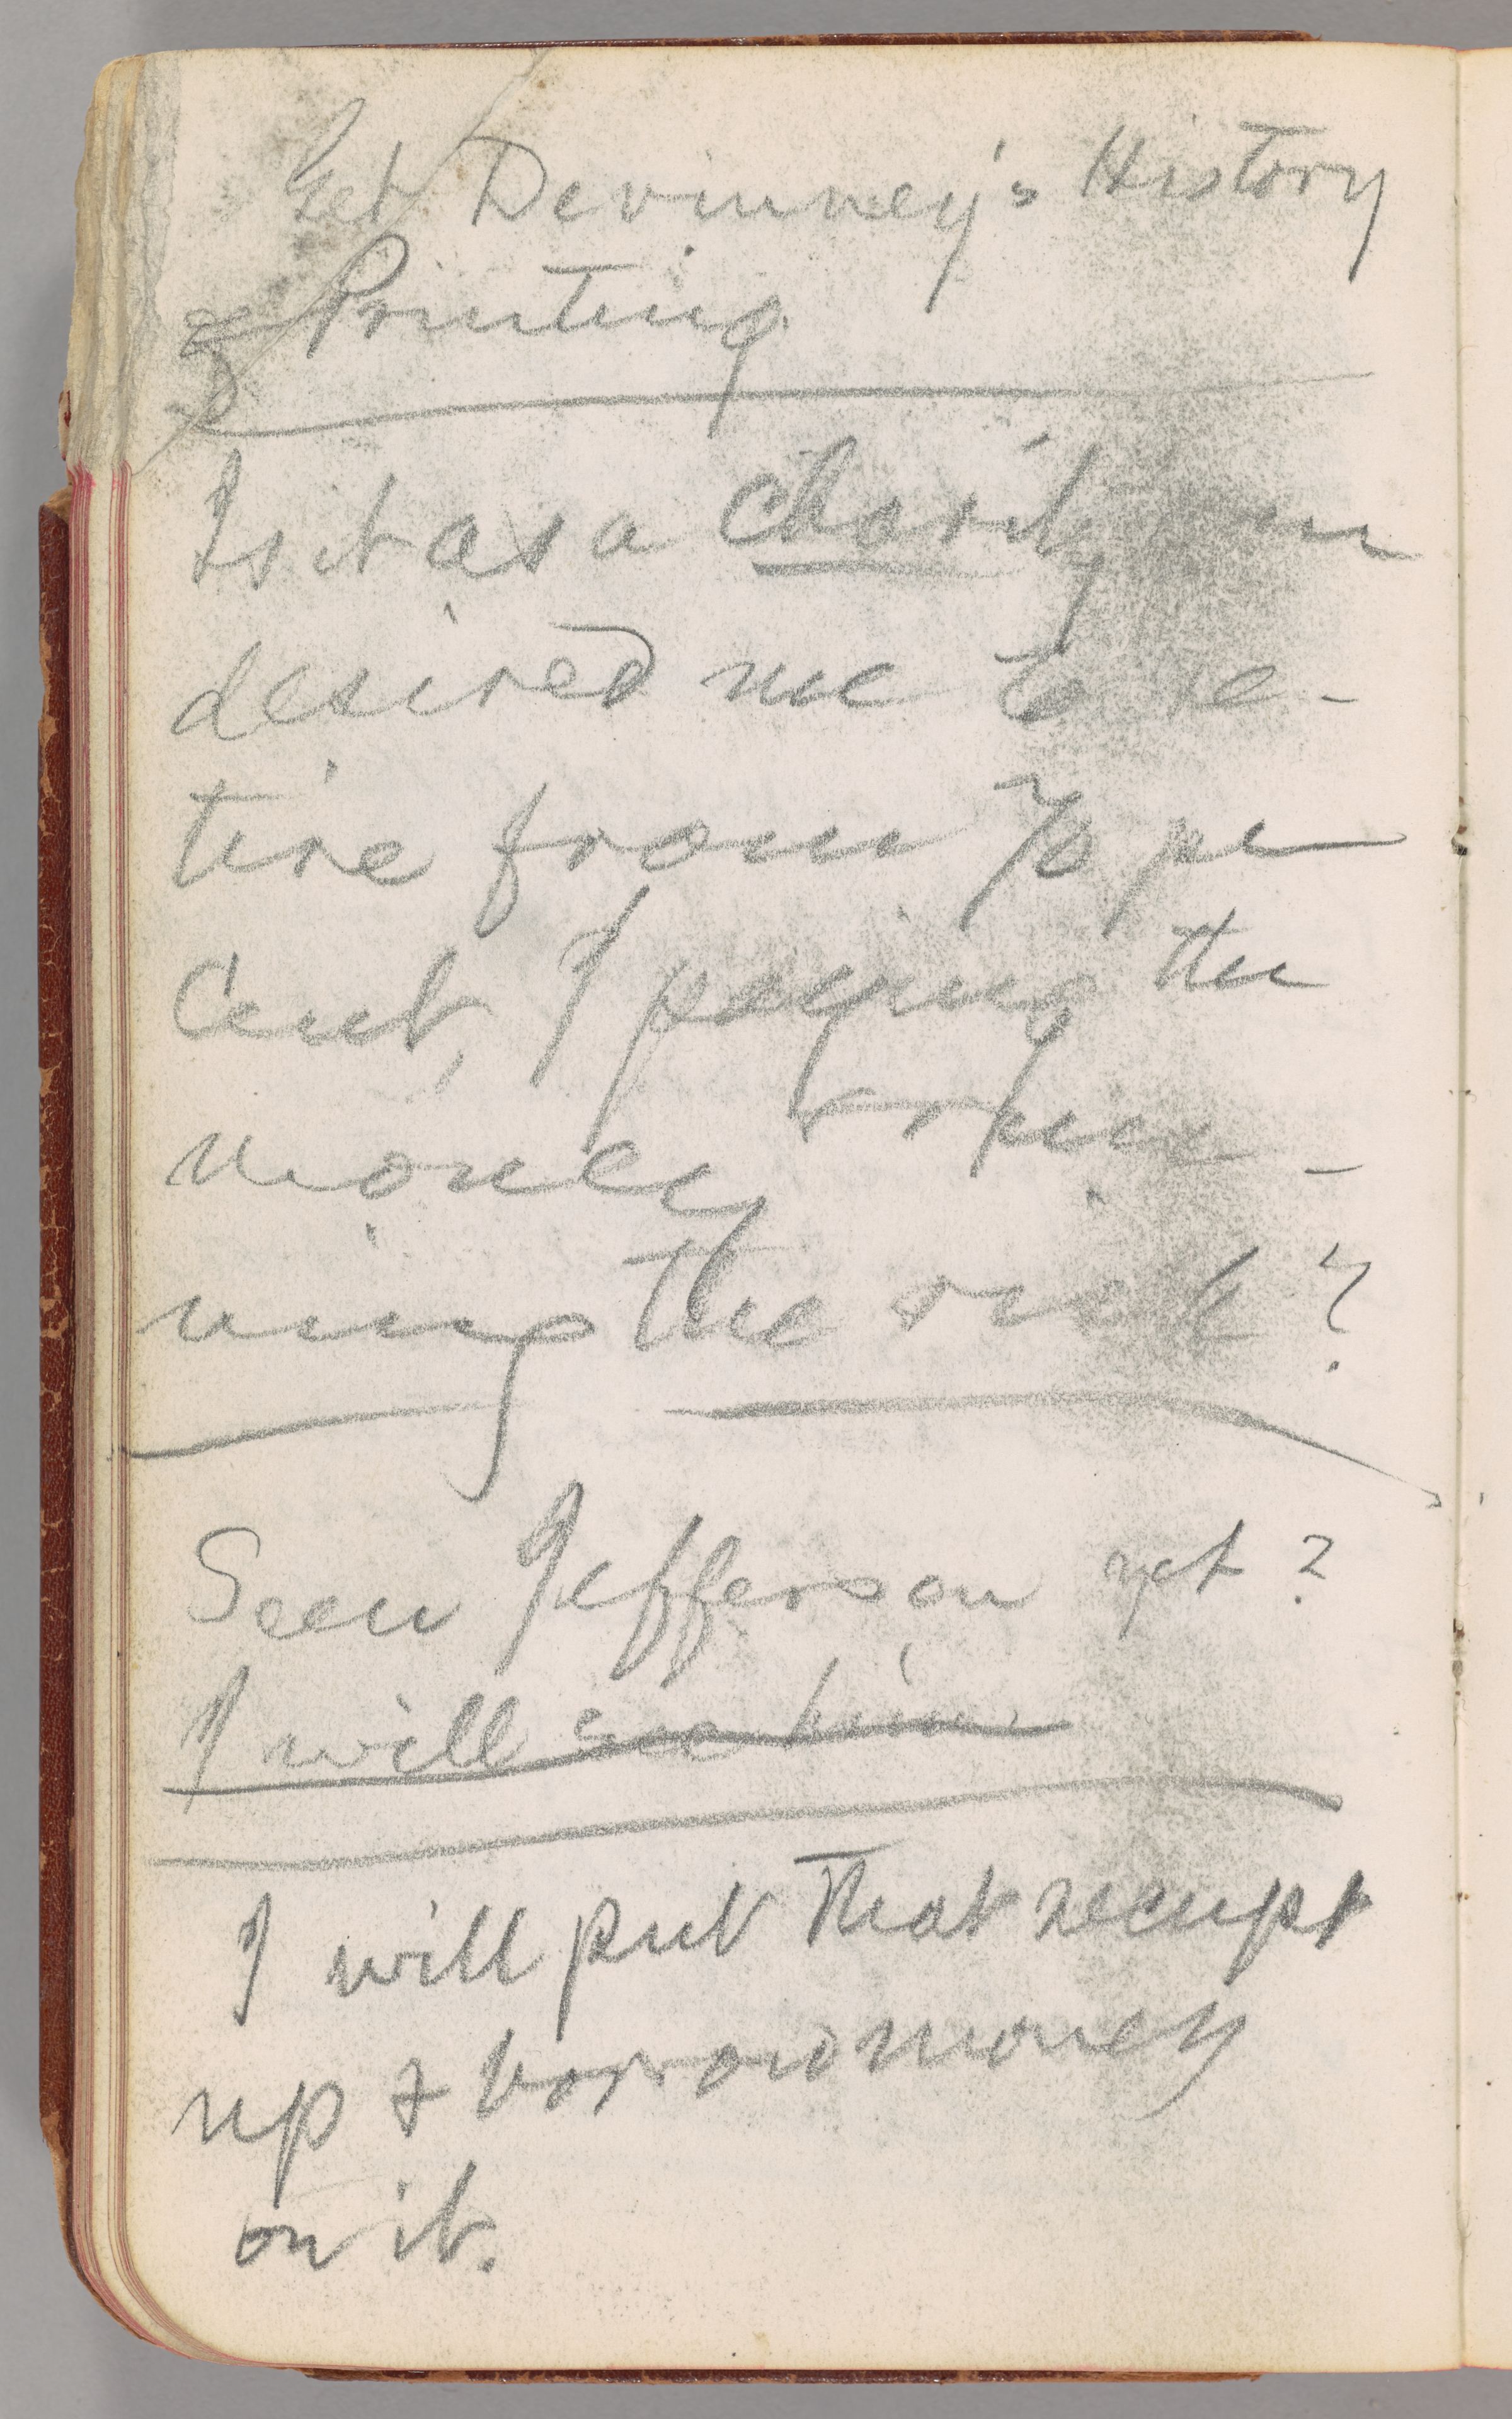 Get Devinney's History
of Printing.
Is it as a charity you
desired me to re-
tire from 70 per
cent, I paying the
money & run-
ning the risk?
Seen Jefferson yet?
I will see him
I will put that receipt
up & borrow money
on it.